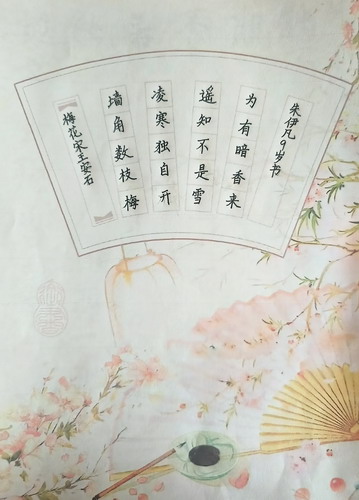 梅花宋王安石
墙角数枝梅
凌寒独自开
遥知不是雪
为有暗香来
朱伊凡9岁书